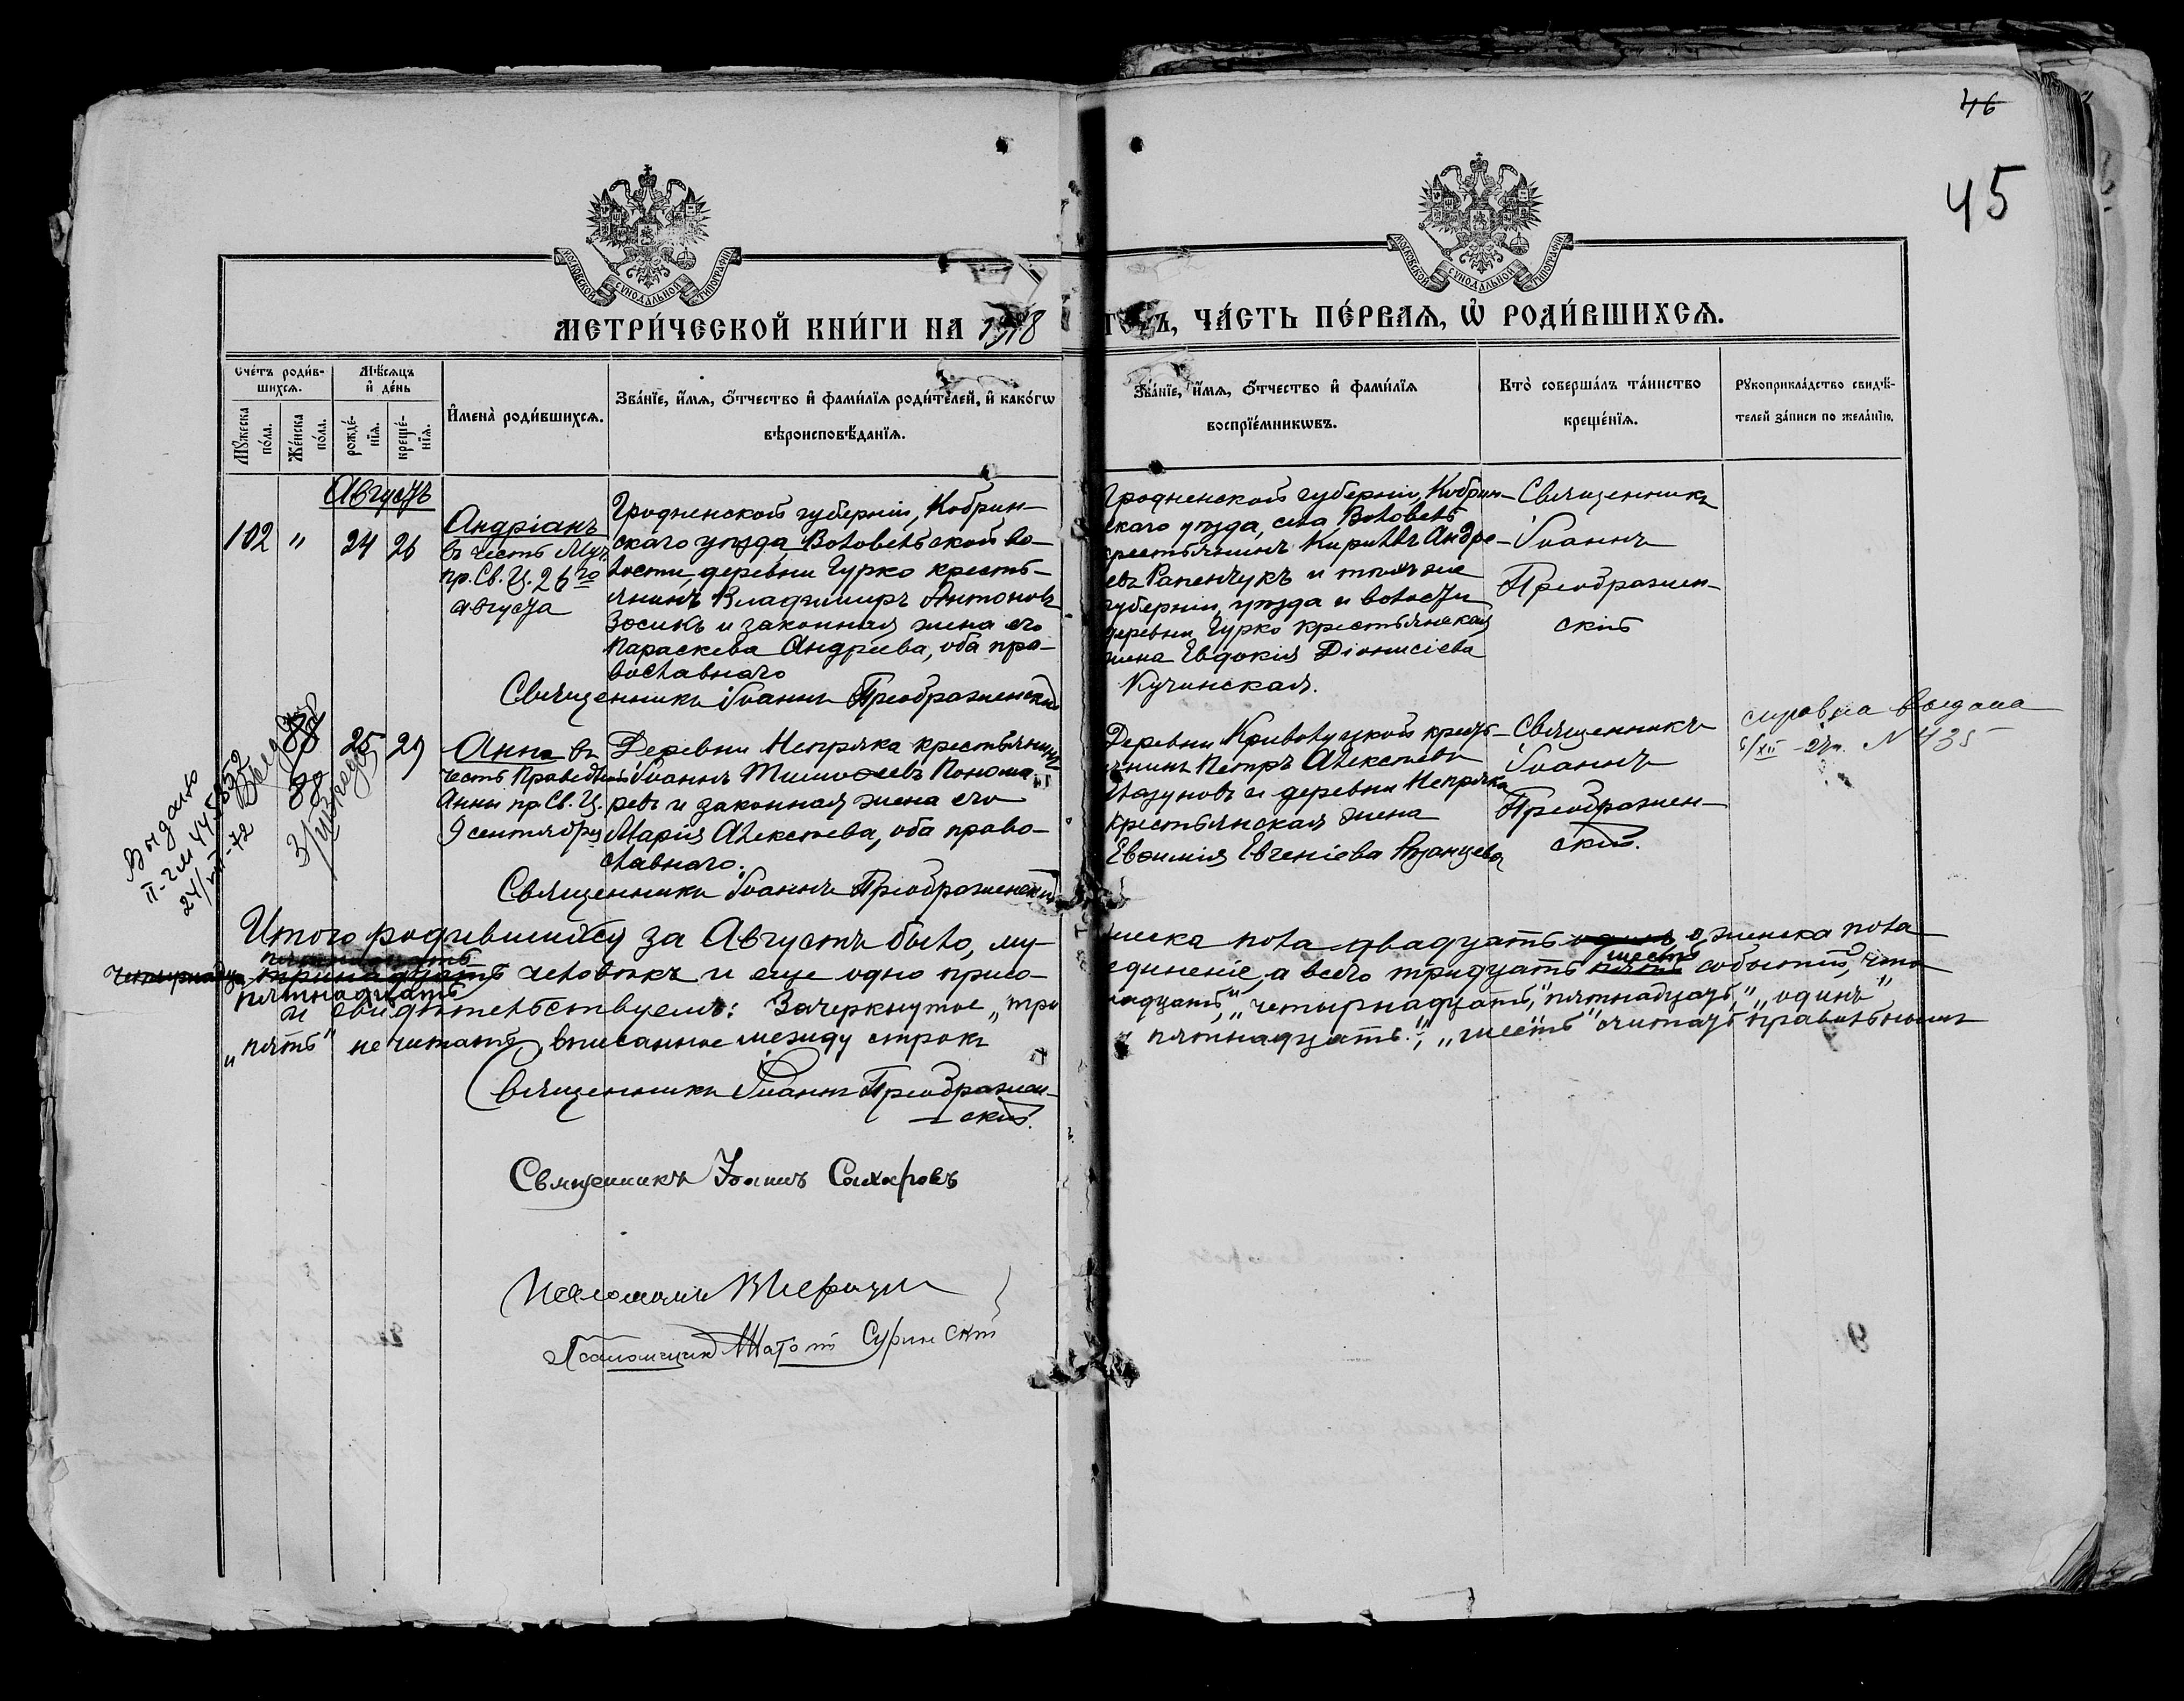 46
45
МОСКОВСКОЙ СѴНОДАЛЬНОЙ ТИПОГРАФІИ
МОСКОВСКОЙ СѴНОДАЛЬНОЙ ТИПОГРАФІИ
МЕТРИ́ЧЕСКОЙ КНИ́ГИ НА 1918
ЧА́СТЬ ПЕ́РВАѦ, Ѡ҆ РОДИ́ВШИХСѦ.
Сче́тъ роди́в-
шихсѧ.
Мꙋ́жеска
по́ла.
Же́нска
по́ла.
Мѣ́сѧцъ
и҆ де́нь
рожде́-
нїѧ.
креще́-
нїѧ.
И҆мена̀ роди́вшихсѧ.
Зва́нїе, и҆́мѧ, ѻ҆́тчество и҆ фами́лїѧ роди́телей, и҆ како́гѡ
вѣроисповѣ́данїѧ.
Зва́нїе, и҆́мѧ, ѻ҆́тчество и҆ фами́лїѧ
воспрїе́мникѡвъ.
Кто̀ соверша́лъ та́инство
креще́нїѧ.
Рꙋкоприкла́дство свидѣ́-
телей за́писи по жела́нїю.
Августъ
102 " 24 26
Андріанъ
въ честь Муч.
пр. Св. Ц. 26го
августа
Гродненской губерніи, Кобрин-
скаго уѣзда Воловельской во-
лости деревни Гурко кресть-
янинъ Владимиръ Антоновъ
Зосикъ и законная жена его
Параскева Андреева, оба пра-
вославнаго
Священникъ Іоаннъ Преображенскій
Гродненской губерніи, Кобрин-
скаго уѣзда, села Воловель
крестьянинъ Кириллъ Андре-
евъ Рапенчукъ и той же
губерніи, уѣзда и волости
деревни Гурко крестьянская
жена Евдокія Діонисіева
Кучинская.
Священникъ
Іоаннъ
Преображен-
скій
88
25 29
Анна въ
честь Праведной
Анны пр. Св. Ц.
9 сентября
Деревни Непряка крестьянинъ
Іоаннъ Тимоѳеевъ Понома-
ревъ и законная жена его
Марія Алексѣева, оба право-
славнаго.
Священникъ Іоаннъ Преображенскій
Деревни Криволуцкой кресть-
янинъ Петръ Алексѣевъ
Глазуновъ и деревни Непряка
крестьянская жена
Евѳимія Евгеніева Рязанцева
Священникъ
Іоаннъ
Преображен-
скій.
справка выдана
№ 435
Выдано
24/VII-72
Итого родившихся за Августъ было, му-
жеска пола двадцать одинъ, а женска пола
четырнадца
пятнадцать
тринадцать человѣкъ и еще одно присо-
единеніе, а всего тридцать пять событій, что
шесть
пятнадцать
и свидѣтельствуемъ: Зачеркнутое „три
надцать", „четырнадцать", „пятнадцать", „одинъ"
„пять" не читать, вписанное между строкъ
„пятнадцать", „шесть" считать правильнымъ
Священникъ Іоаннъ Преображен-
скій.
Священникъ Іоаннъ Сахаровъ
Псаломщикъ Суринскій